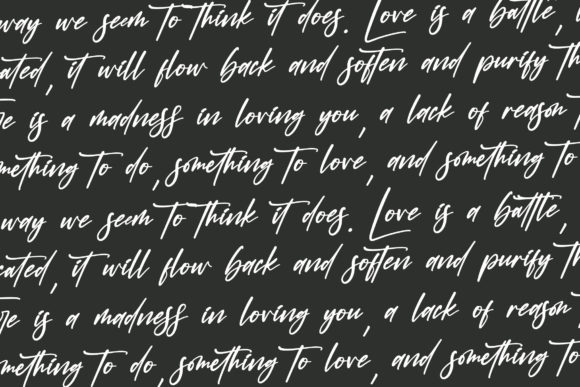 way we seem to think it does. Love is a battle,
cated, it will flow back and soften and purify th
re is a madness in loving you, a lack of reason
mething to do, something to love, and something to
way we seem to think it does. Love is a battle,
cated, it will flow back and soften and purify th
re is a madness in loving you, a lack of reason
mething to do, something to love, and something to